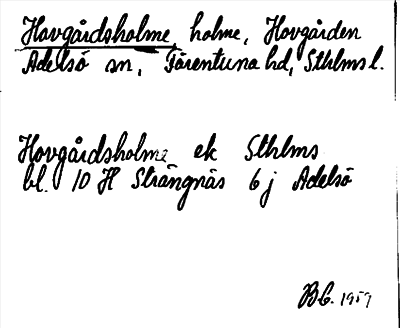 Hovgårdsholme, holme, Hovgården
Adelsö sn, Färentuna hd, Sthlms l.
Hovgårdsholme ek Sthlms
bl. 10 H Strängnäs 6 j Adelsö
BG. 1959